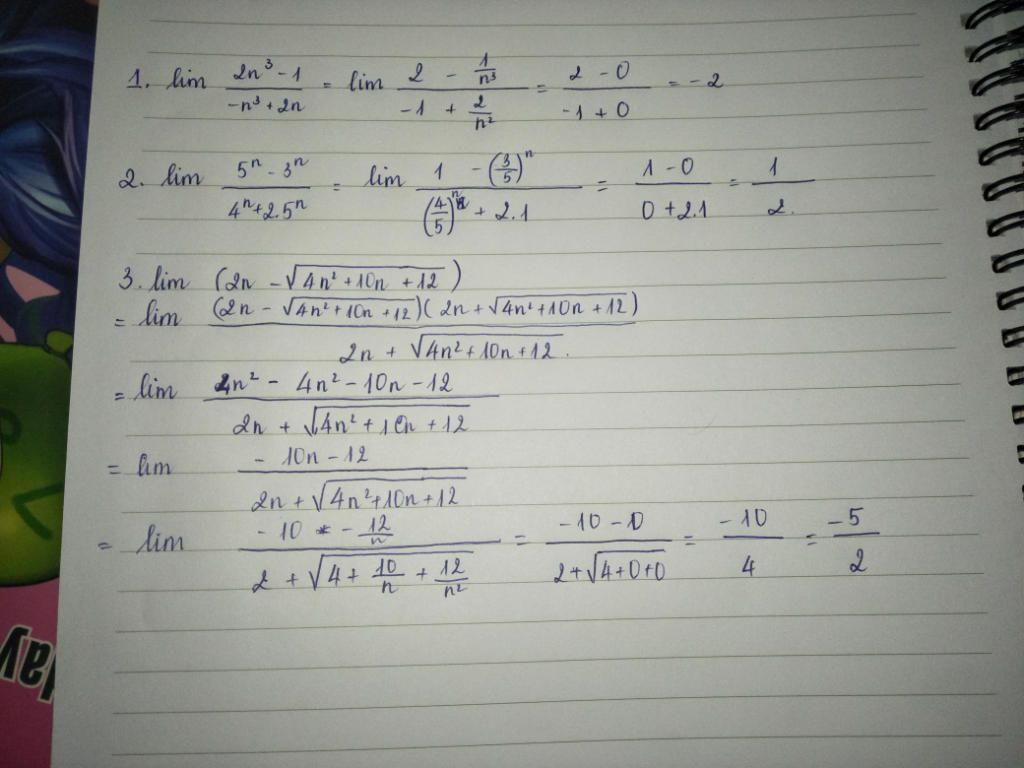 1. lim (2n³ - 1)/(-n³ + 2n) = lim (2 - 1/n³)/(-1 + 2/n²) = (2 - 0)/(-1 + 0) = -2
2. lim (5ⁿ - 3ⁿ)/(4ⁿ + 2.5ⁿ) = lim (1 - (3/5)ⁿ)/((4/5)ⁿ + 2.1) = (1 - 0)/(0 + 2.1) = 1/2.
3. lim (2n - √(4n² + 10n + 12))
= lim ((2n - √(4n² + 10n + 12))(2n + √(4n² + 10n + 12)))/(2n + √(4n² + 10n + 12)).
= lim (4n² - 4n² - 10n - 12)/(2n + √(4n² + 10n + 12))
= lim (-10n - 12)/(2n + √(4n² + 10n + 12))
= lim (-10 - 12/n)/(2 + √(4 + 10/n + 12/n²)) = (-10 - 0)/(2 + √(4 + 0 + 0)) = -10/4 = -5/2